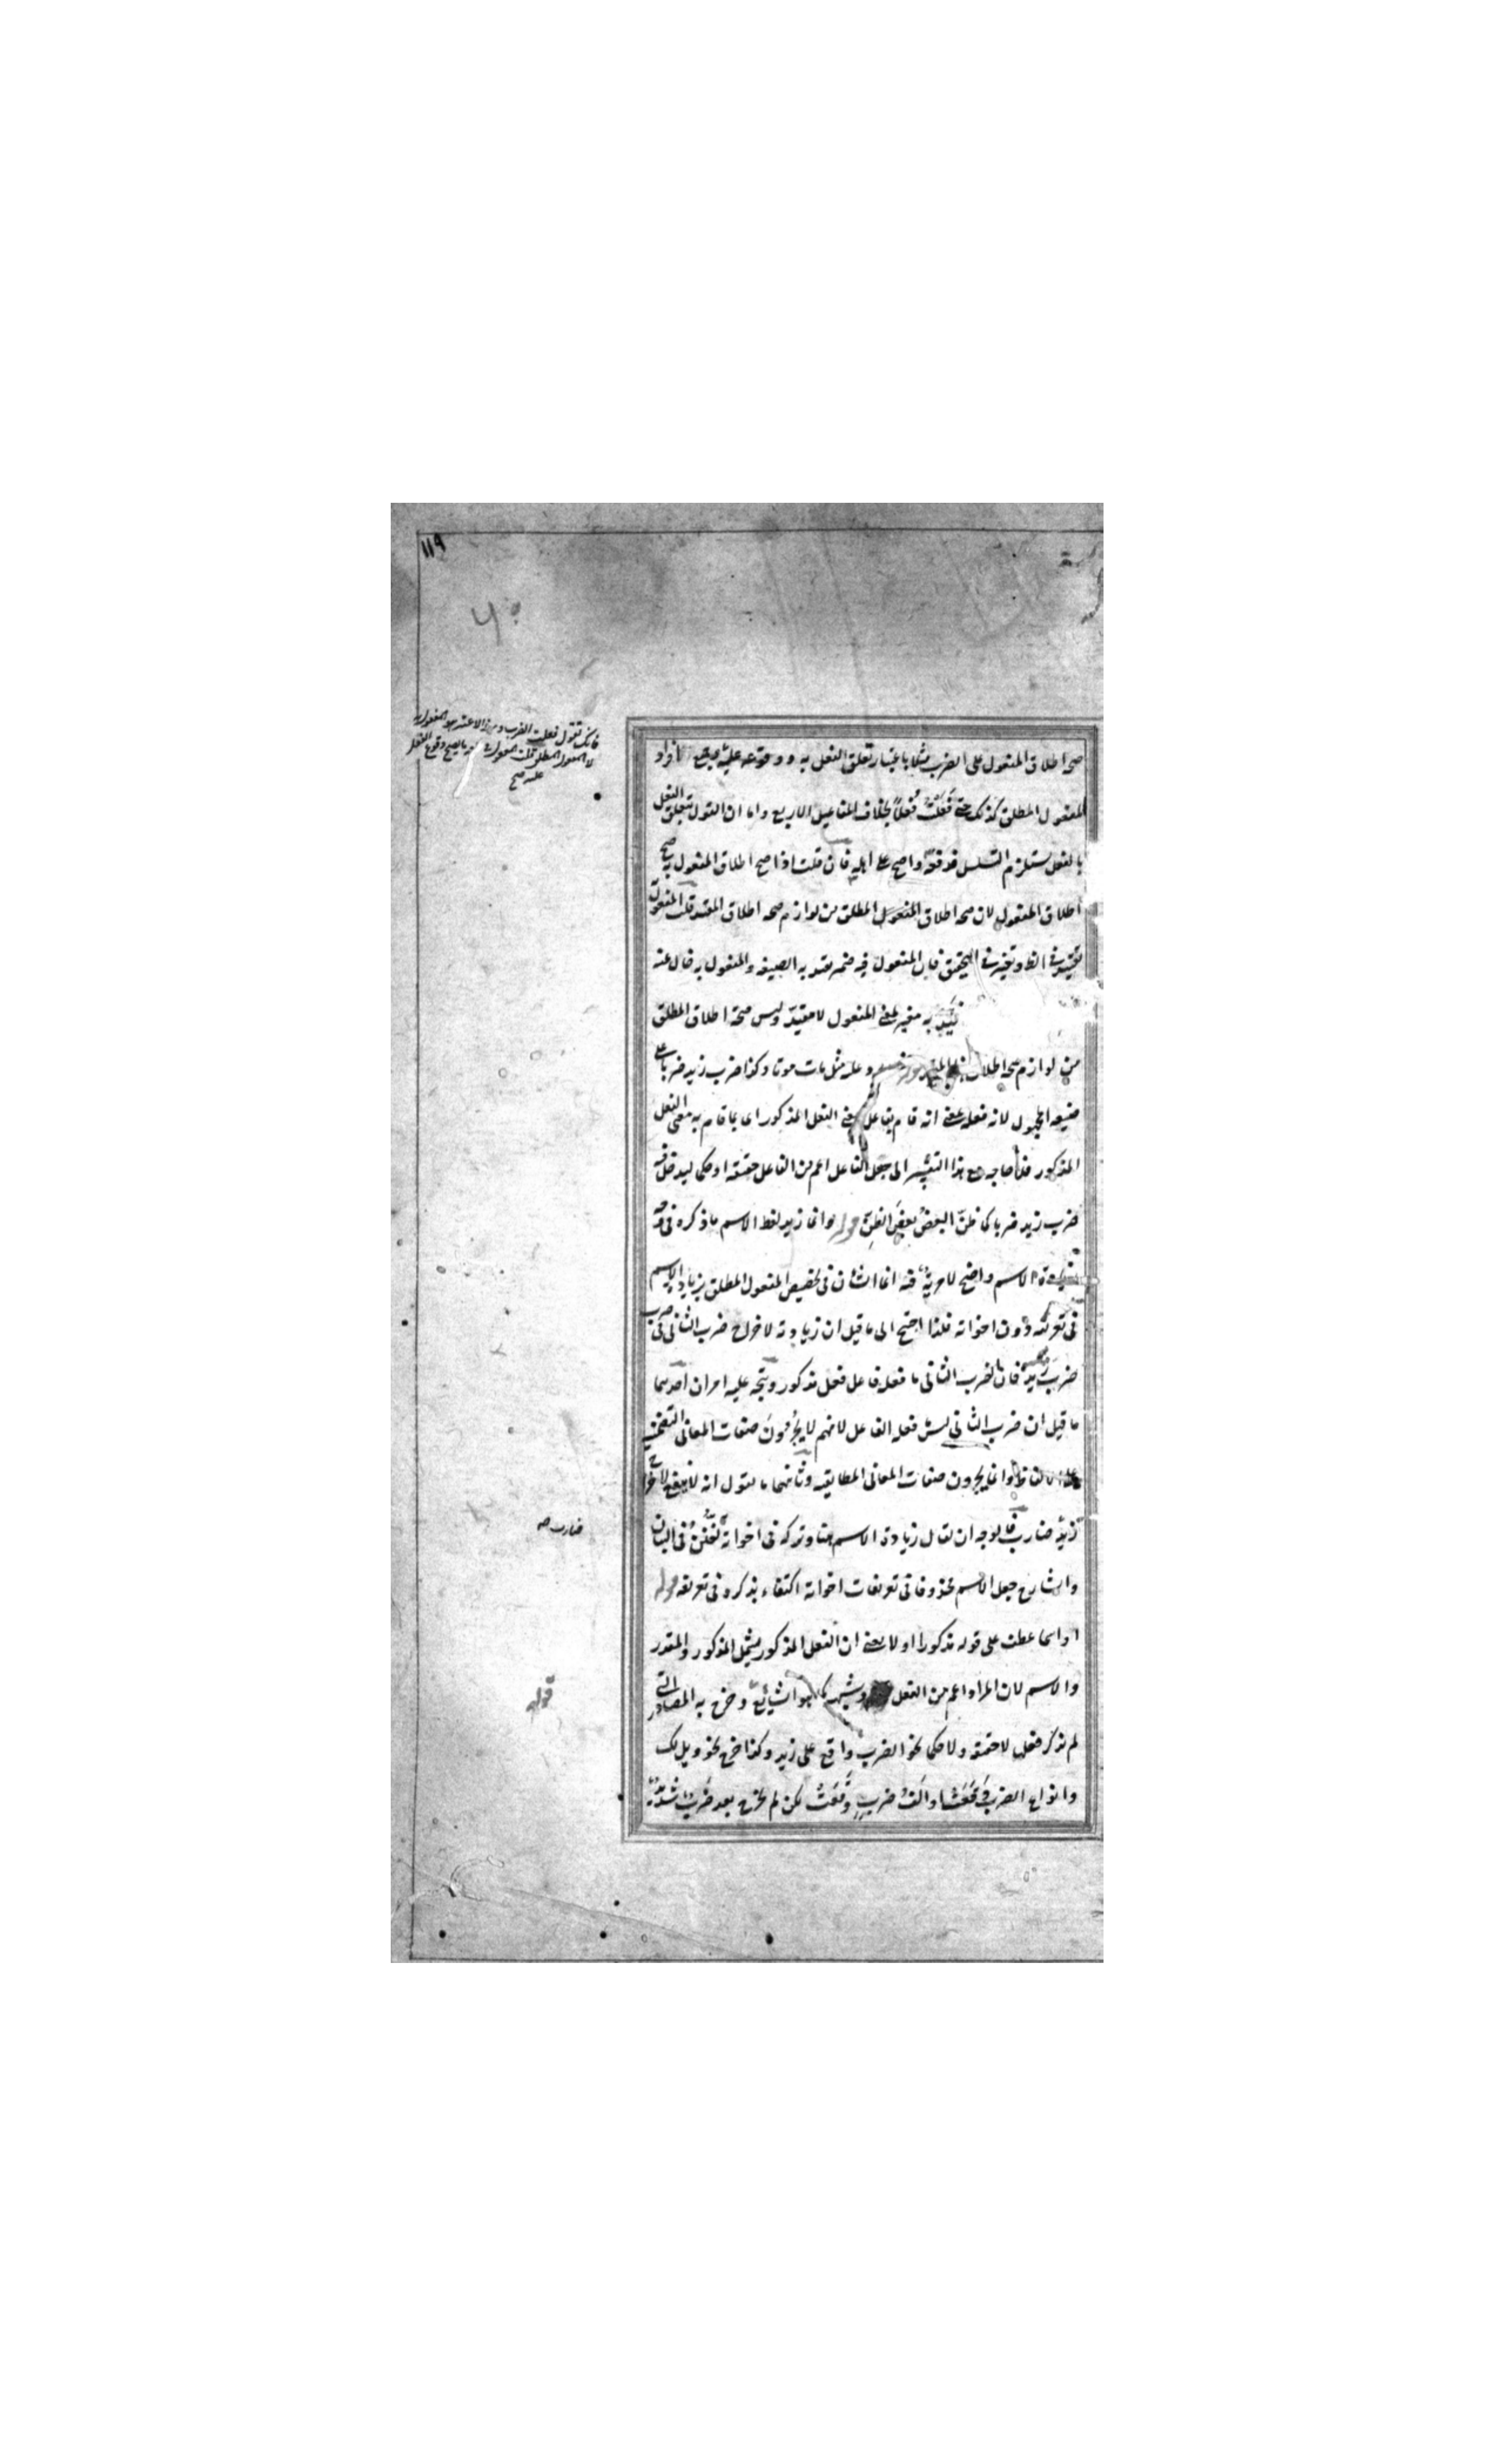 ١١٩
فانك تقول فعلت الضرب و المفعول به
لا المفعول المطلق قلت المفعول به ما يصح وقوع الفعل
عليه صح
صحة اطلاق المفعول على الضرب مثلا باعتبار تعلق الفعل به ووقوعه عليه وجميع افراد
المفعول المطلق كذلك حتى فعلت فعلا بخلاف المفاعيل الاربع واما ان القول بتعلق الفعل
بالفعل يستلزم التسلسل فدفعه واضح على اهله فان قلت اذا صح اطلاق المفعول به صح
اطلاق المفعول لان صحة اطلاق المفعول المطلق من لوازم صحة اطلاق المقيد قلت المفعول
في التحقيق فان المفعول فيه ضمير يقيد به الصيغة والمفعول به خال عنه
به مغير لمعنى المفعول لا مقيد وليس صحة اطلاق المطلق
من لوازم صحة اطلاق وعلى مثل مات موتا وكذا ضرب زيد ضربا على
صيغة المجهول لانه فعله بمعنى انه قام بفاعل معنى الفعل المذكور اى بما قام به معنى الفعل
المذكور فلا حاجة مع هذا التفسير الى جعل الفاعل اعم من الفاعل حقيقة او حكما ليدخل فيه
ضرب زيد ضربا كما ظن البعض بعض الظن قوله وانما زيد لفظ الاسم ما ذكره فى وجه
زيادة الاسم واضح لا مرية فيه انما الشان فى تخصيص المفعول المطلق بزيادة الاسم
فى تعريفه دون اخواته فلذا احتج الى ما قيل ان زيادته لاخراج ضرب الثانى فى ضرب
ضرب زيد فان الضرب الثانى ما فعله فاعل فعل مذكور ويتجه عليه امران احدهما
ما قيل ان ضرب الثانى ليس فعله الفاعل لانهم لا يجرون صفات المعانى التضمنية
على الالفاظ وانما يجرون صفات المعانى المطابقية وثانيهما ما نقول انه لا ينفع لاخراج
زيد ضارب فالوجه ان يقال زيادة الاسم هنا وتركه فى اخواته تفنن فى البيان
ضارب صح
والشارح جعل الاسم محذوفا فى تعريفات اخواته اكتفاء بذكره فى تعريفه قوله
او اسما عطف على قوله مذكورا اولا يعنى ان الفعل المذكور يشمل المذكور والمقدر
والاسم لان المراد اعم من الفعل وشبهه كما هو الشائع وخرج به المصادر التى
قوله
لم يذكر فعلها لا حقيقة ولا حكما نحو الضرب واقع على زيد وكذا خرج نحو ويل لك
وانواع الضرب وقعت والف ضرب وقعت لكن لم يخرج بعد ضرب شديد